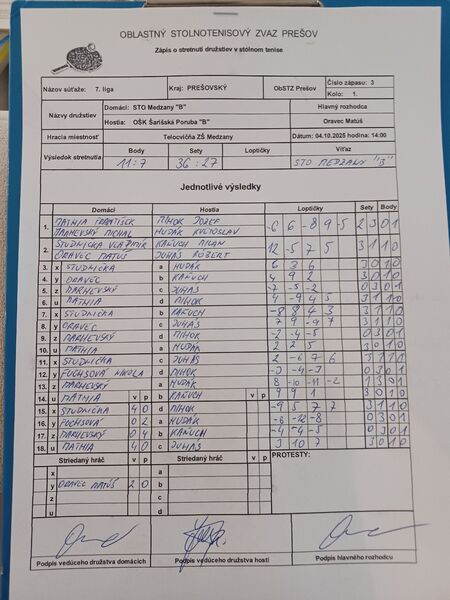 OBLASTNÝ STOLNOTENISOVÝ ZVAZ PREŠOV
Zápis o stretnutí družstiev v stolnom tenise
Názov súťaže: 7. liga Kraj: PREŠOVSKÝ ObSTZ Prešov Číslo zápasu: 3
Kolo: 1.
Názvy družstiev Domáci: STO Medzany "B" Hlavný rozhodca
Hostia: OŠK Šarišská Poruba "B" Oravec Matúš
Hracia miestnosť Telocvičňa ZŠ Medzany Dátum: 04.10.2025 hodina: 14:00
Výsledok stretnutia Body Sety Loptičky Víťaz
11:7 36:27 STO MEDZANY "B"
Jednotlivé výsledky
Domáci Hostia Loptičky Sety Body
1. MATHIA FRANTIŠEK MIHOK JOZEF -6 6 -8 9 -5 2 3 0 1
MARHEVSKÝ MICHAL HUDÁK KVETOSLAV
2. STUDNIČKA VLADIMÍR KAŇUCH MILAN 12 -5 7 5 3 1 1 0
ORAVEC MATÚŠ JUHÁS RÓBERT
3. x STUDNIČKA a HUDÁK 6 3 6 3 0 1 0
4. y ORAVEC b KAŇUCH 4 9 2 3 0 1 0
5. z MARHEVSKÝ c JUHÁS -7 -5 -2 0 3 0 1
6. u MATHIA d MIHOK 4 -9 4 5 3 1 1 0
7. x STUDNIČKA b KAŇUCH -8 8 4 3 3 1 1 0
8. y ORAVEC c JUHÁS 7 9 -9 7 3 1 1 0
9. z MARHEVSKÝ d MIHOK -2 -4 -5 0 3 0 1
10. u MATHIA a HUDÁK 2 2 5 3 0 1 0
11. x STUDNIČKA c JUHÁS 2 -6 7 6 3 1 1 0
12. y FUCHSOVÁ NIKOLA d MIHOK -3 -4 -3 0 3 0 1
13. z MARHEVSKÝ a HUDÁK 8 -10 -11 -2 1 3 0 1
14. u MATHIA v p b KAŇUCH v p 9 9 1 3 0 1 0
15. x STUDNIČKA 4 0 d MIHOK -9 5 7 7 3 1 1 0
16. y FUCHSOVÁ 0 2 a HUDÁK -6 -12 -8 0 3 0 1
17. z MARHEVSKÝ 0 4 b KAŇUCH -4 -4 -5 0 3 0 1
18. u MATHIA 4 0 c JUHÁS 3 10 7 3 0 1 0
Striedaný hráč v p Striedaný hráč v p PROTESTY:
x a
y ORAVEC MATÚŠ 2 0 b
z c
u d
Podpis vedúceho družstva domácich Podpis vedúceho družstva hostí Podpis hlavného rozhodcu